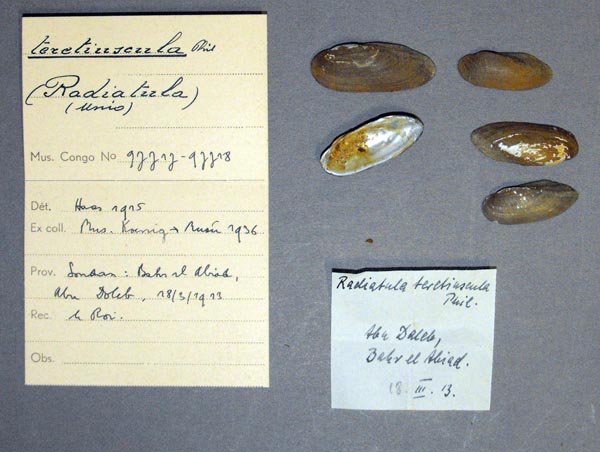 teretiuscula Phil
(Radiatula)
(Unio)
Mus. Congo No 97717-97718
Dét. Haas 1915
Ex coll. Mus. Koenig → 1936
Prov. Soudan: Bahr el Abiad,
Abu Doleb, 18/3/1913
Rec. le Roi.
Obs.
Radiatula teretiuscula
Phil.
Abu Daleb,
Bahr el Abiad.
18. III. 13.